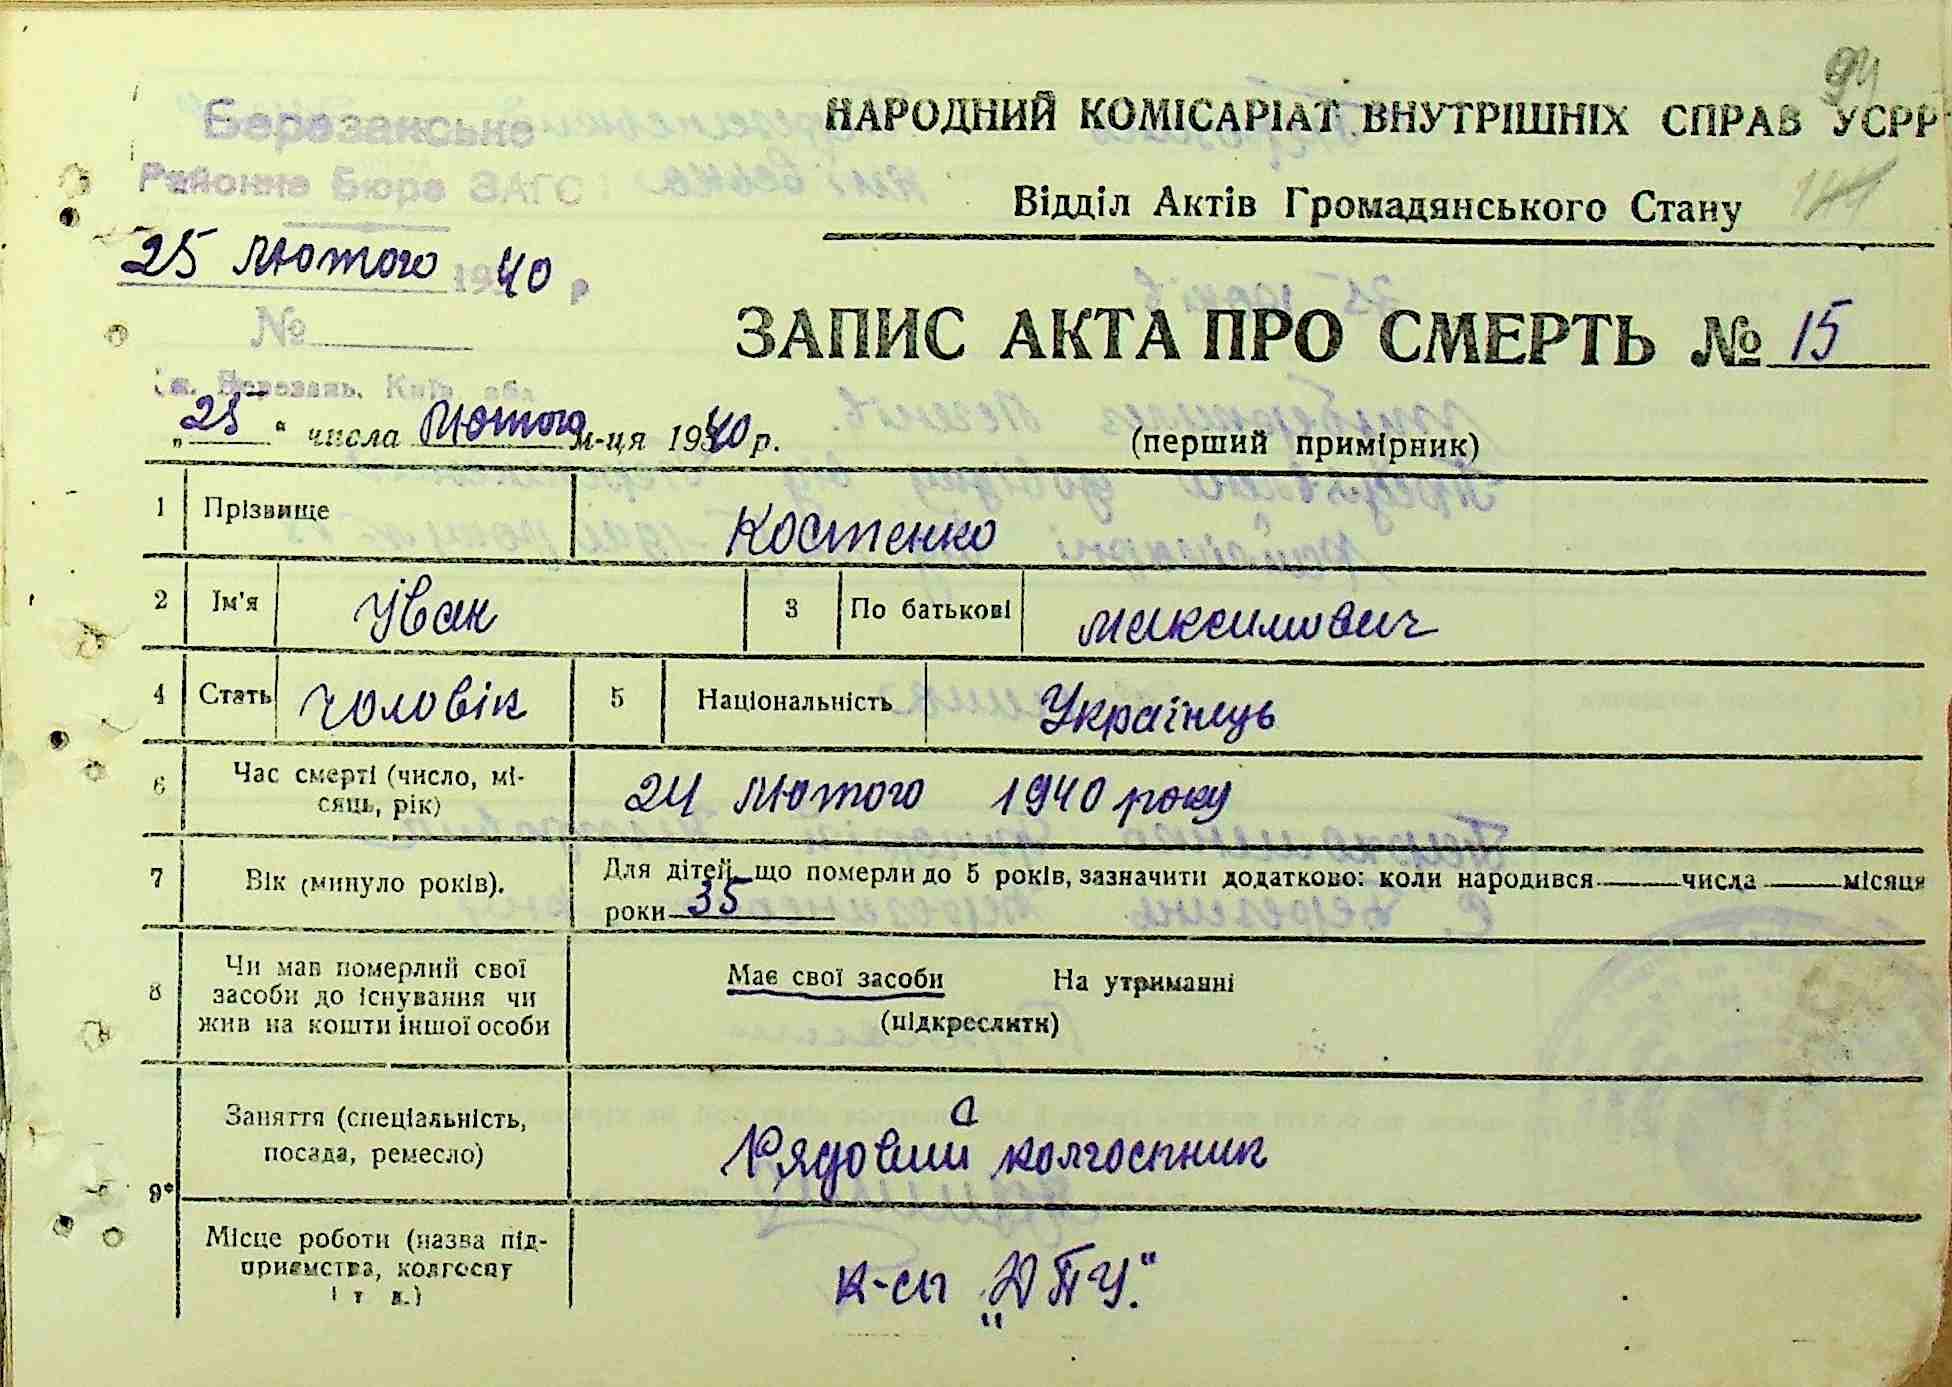 94
НАРОДНИЙ КОМІСАРІАТ ВНУТРІШНІХ СПРАВ УСРР
Березанське
Районне Бюро ЗАГС
Відділ Актів Громадянського Стану
144
25 Лютого 1940 р
№
ЗАПИС АКТА ПРО СМЕРТЬ № 15
м. Березань, Київ. обл.
„25“ числа Лютого м-ця 1940 р.
(перший примірник)
1 Прізвище Костенко
2 Ім'я Іван 3 По батькові Максимович
4 Стать чоловік 5 Національність Українець
6 Час смерті (число, мі-
сяць, рік) 24 Лютого 1940 року
7 Вік (минуло років). Для дітей, що померли до 5 років, зазначити додатково: коли народився числа місяця
роки 35
8 Чи мав померлий свої
засоби до існування чи
жив на кошти іншої особи
Має свої засоби На утриманні
(підкреслити)
9 Заняття (спеціальність,
посада, ремесло) Рядовий колгоспник
Місце роботи (назва під-
приємства, колгоспу
і т д.) к-сп „ДПУ.“